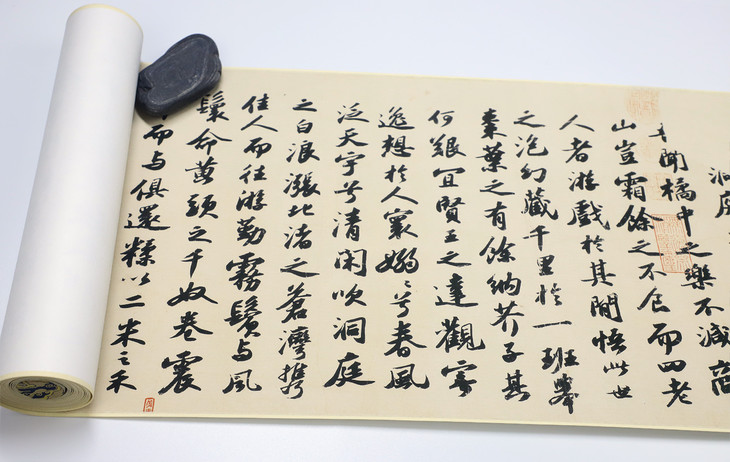 洞庭
聞橘中之樂不減商
山豈霜餘之不食而四老
人者游戲於其間悟此世
之泡幻藏千里於一班舉
棗葉之有餘納芥子其
何艱宜賢王之達觀寄
逸想於人寰嫋〻兮春風
泛天宇兮清閑吹洞庭
之白浪漲北渚之蒼灣携
佳人而往游勤霧鬢与風
鬟命黃頭之千奴卷震
而与俱還糅以二米之禾